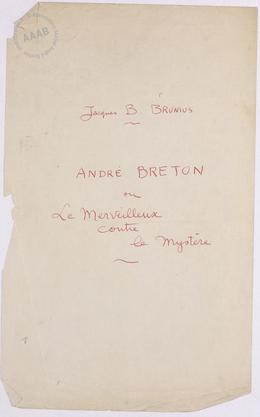 AAAB
Jacques B. BRUNIUS
ANDRÉ BRETON
ou
Le Merveilleux
contre
le Mystère